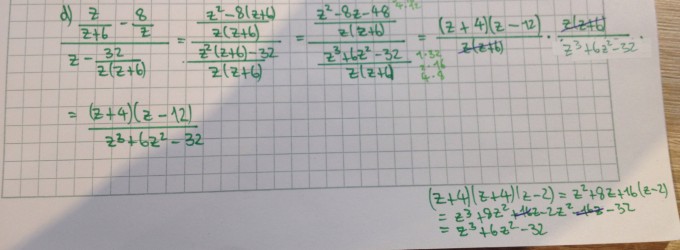 d) (z/(z+6) - 8/z)/(z - 32/(z(z+6))) = ((z²-8(z+6))/(z(z+6)))/((z²(z+6)-32)/(z(z+6))) = ((z²-8z-48)/(z(z+6)))/((z³+6z²-32)/(z(z+6))) = (z+4)(z-12)/(z(z+6)) · z(z+6)/(z³+6z²-32) ·
4·12
1·32
2·16
4·8
= (z+4)(z-12)/(z³+6z²-32)
(z+4)(z+4)(z-2) = z²+8z+16(z-2)
= z³+8z²+16z-2z²-16z-32
= z³+6z²-32